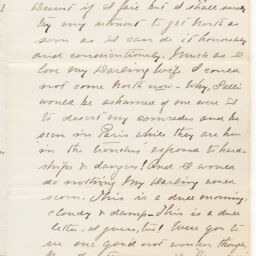 Dearest if I fail but I shall surely
try my utmost to get North as
soon as I can do it honorably
and conscientiously. Much as I
love my Darling Wife I could
not come North now - Why, Pet I
would be ashamed of me were I
to desert my comrades and be
seen in Paris while they are here
in the trenches exposed to hard-
ships & dangers! And I would
do nothing my Darling would
scorn. This is a dull morning,
cloudy & damp - This is a dull
letter, I guess, too! Were you to
see me you'd not wonder though,